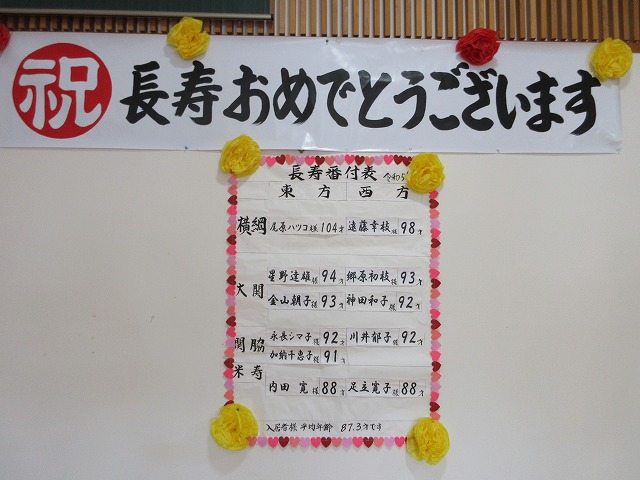 祝 長寿おめでとうございます
長寿番付表 令和5
東方 西方
横綱 尾原ハツコ様 104才 遠藤幸枝様 98才
星野達雄様 94才 郷原初枝様 93才
大関 金山朝子様 93才 神田和子様 92才
関脇 永長シマ子様 92才 川井郁子様 92才
加納千恵子様 91才
米寿 内田 寛様 88才 足立寛子様 88才
入居者様 平均年齢 87.3才です